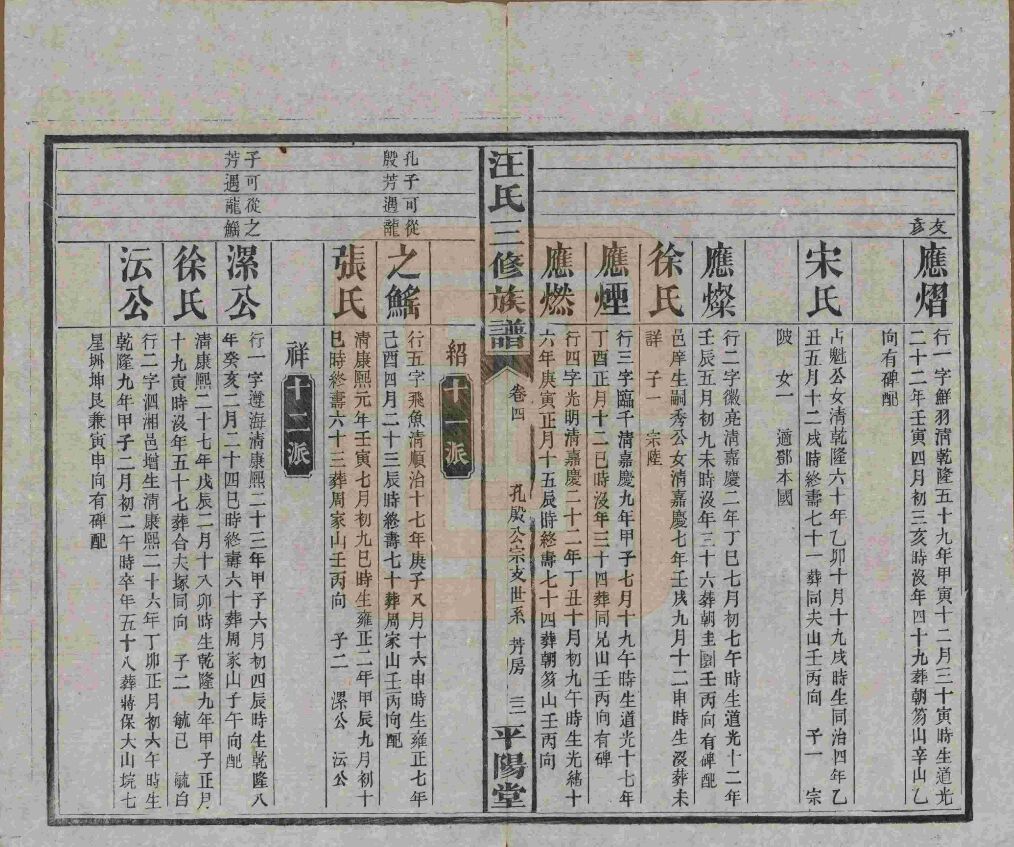 友
彥
應熠
行一字鮮羽清乾隆五十九年甲寅十二月三十寅時生道光
二十二年壬寅四月初三亥時沒年四十九葬朝笏山辛山乙
向有碑配
宋氏
占魁公女清乾隆六十年乙卯十月十九戌時生同治四年乙
丑五月十二戌時終壽七十一葬同夫山壬丙向 子一 宗
陂 女一 適鄧本國
應燦
行二字徽亮清嘉慶二年丁巳七月初七午時生道光十二年
壬辰五月初九未時沒年三十六葬朝圭園壬丙向有碑配
徐氏
邑庠生嗣秀公女清嘉慶七年壬戌九月十二申時生沒葬未
詳 子一 宗陸
應煙
行三字臨千清嘉慶九年甲子七月十九午時生道光十七年
丁酉正月十二巳時沒年三十四葬同兄山壬丙向有碑
應燃
行四字光明清嘉慶二十二年丁丑十月初九午時生光緒十
六年庚寅正月十五辰時終壽七十四葬朝笏山壬丙向
汪氏三修族譜
卷四 孔殷公宗支世系 芳房 三二
平陽堂
紹十一派
孔子可從
殷芳遇龍
之鰩
行五字飛魚清順治十七年庚子八月十六申時生雍正七年
己酉四月二十三辰時終壽七十葬周家山壬丙向配
張氏
清康熙元年壬寅七月初九巳時生雍正二年甲辰九月初十
巳時終壽六十三葬周家山壬丙向 子二 漯公 沄公
祥十二派
子可從之
芳遇龍鰩
漯公
行一字遵海清康熙二十三年甲子六月初四辰時生乾隆八
年癸亥二月二十四巳時終壽六十葬周家山子午向配
徐氏
清康熙二十七年戊辰二月十八卯時生乾隆九年甲子正月
十九寅時沒年五十七葬合夫塚同向 子二 毓已 毓白
沄公
行二字泗湘邑增生清康熙二十六年丁卯正月初六午時生
乾隆九年甲子二月初二午時卒年五十八葬蔣保大山垸七
星坵坤艮兼寅申向有碑配